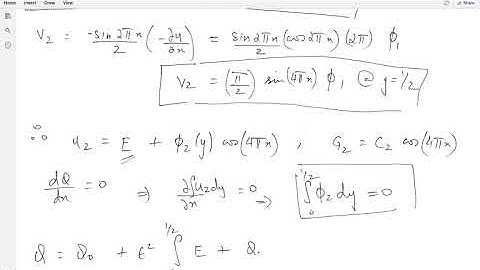 Home Insert Draw View
V₂ = -sin2πx/2 (-∂u/∂x) = sin2πx/2 (cos2πx)(2π) ϕ₁
V₂ = (π/2) sin(4πx) ϕ₁ @ y=1/2
∴ u₂ = E + ϕ₂(y) cos(4πx) , G₂ = C₂ cos(4πx)
dQ/dx = 0 ⇒ ∂∫u₂dy/∂x = 0 → ∫₀^{1/2} ϕ₂ dy = 0
Q = Q₀ + ε² ∫^{1/2} E + Q.